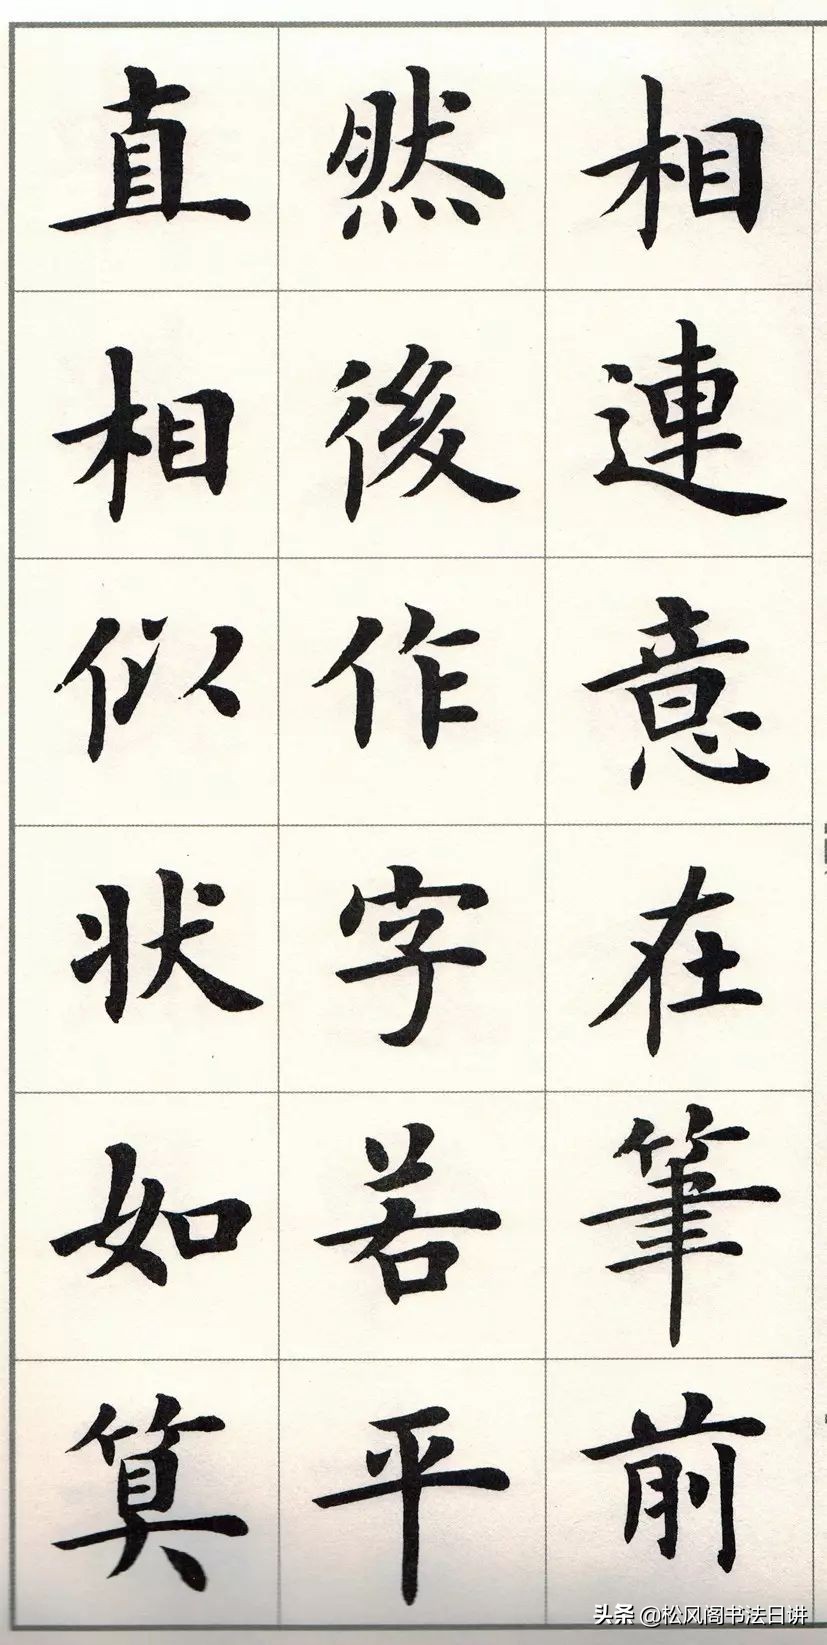 相連意在筆前
然後作字若平
直相似状如筭
头条 @松风阁书法日讲